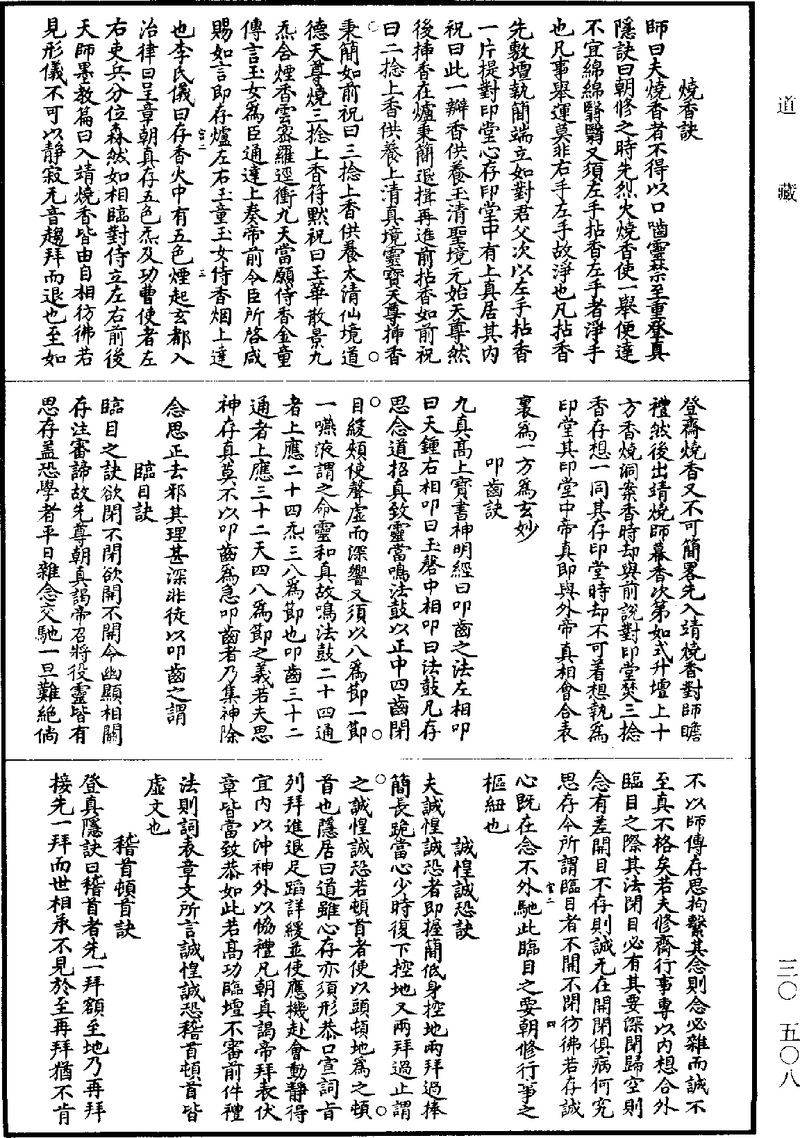 道藏
燒香訣
師曰夫燒香者不得以口嚙靈禁至重登真
隱訣曰朝修之時先烈火燒香使一舉便達
不宜綿綿翳翳又須左手拈香左手者淨手
也凡事舉運莫非右手左手故淨也凡拈香
先敷壇執簡端立如對君父次以左手拈香
一片提對印堂心存印堂中有上真居其內
祝曰此一瓣香供養玉清聖境元始天尊然
後揷香在爐秉簡退揖再進前拈香如前祝
曰二捻上香供養上清真境靈寶天尊揷香
秉簡如前祝曰三捻上香供養太清仙境道
德天尊燒三捻上香符默祝曰玉華散景九
炁含煙香雲密羅逕衝九天當願侍香金童
傳言玉女為臣通達上奏帝前令臣所啓咸
賜如言即存爐左右玉童玉女侍香烟上達
也李氏儀曰存香火中有五色煙起玄都入
治律曰呈章朝真存五色炁及功曹使者左
右吏兵分位森然如相臨對侍立左右前後
天師墨教篇曰入靖燒香皆由自相彷彿若
見形儀不可以靜寂无音趨拜而退也至如
登齋燒香又不可簡畧先入靖燒香對師瞻
禮然後出靖燒師幕香次第如式升壇上十
方香燒洞案香時却與前說對印堂焚三捻
香存想一同其存印堂時却不可着想執為
印堂其印堂中帝真即與外帝真相會合表
裏為一方為玄妙
叩齒訣
九真高上寶書神明經曰叩齒之法左相叩
曰天鍾右相叩曰玉磬中相叩曰法鼓凡存
思念道招真致靈當鳴法鼓以正中四齒閉
目緩頰使聲虛而深響又須以八為節一節
一嚥液謂之命靈和真故鳴法鼓二十四通
者上應二十四炁三八為節也叩齒三十二
通者上應三十二天四八為節之義若夫思
神存真莫不以叩齒為急叩齒者乃集神除
念思正去邪其理甚深非徒以叩齒之謂
臨目訣
臨目之訣欲閉不閉欲開不開令幽顯相關
存注審諦故先尊朝真謁帝召將役靈皆有
思存盖恐學者平日雜念交馳一旦難絕倘
不以師傳存思拘繫其念則念必雜而誠不
至真不格矣若夫修齋行事專以內想合外
臨目之際其法閉目必有其要深閉歸空則
念有差開目不存則誠无在開閉俱病何究
思存今所謂臨目者不開不閉彷彿若存誠
心既在念不外馳此臨目之要朝修行事之
樞紐也
誠惶誠恐訣
夫誠惶誠恐者即握簡低身控地兩拜過捧
簡長跪當心少時復下控地又兩拜過止謂
之誠惶誠恐若頓首者便以頭頓地為之頓
首也隱居曰道雖心存亦須形恭口宣詞旨
列拜進退足蹈詳緩並使應機赴會動靜得
宜內以沖神外以恊禮凡朝真謁帝拜表伏
章皆當致恭如此若高功臨壇不審前件禮
法則詞表章文所言誠惶誠恐稽首頓首皆
虛文也
稽首頓首訣
登真隱訣曰稽首者先一拜額至地乃再拜
接先一拜而世相承不見於至再拜猶不肯
三〇 五〇八